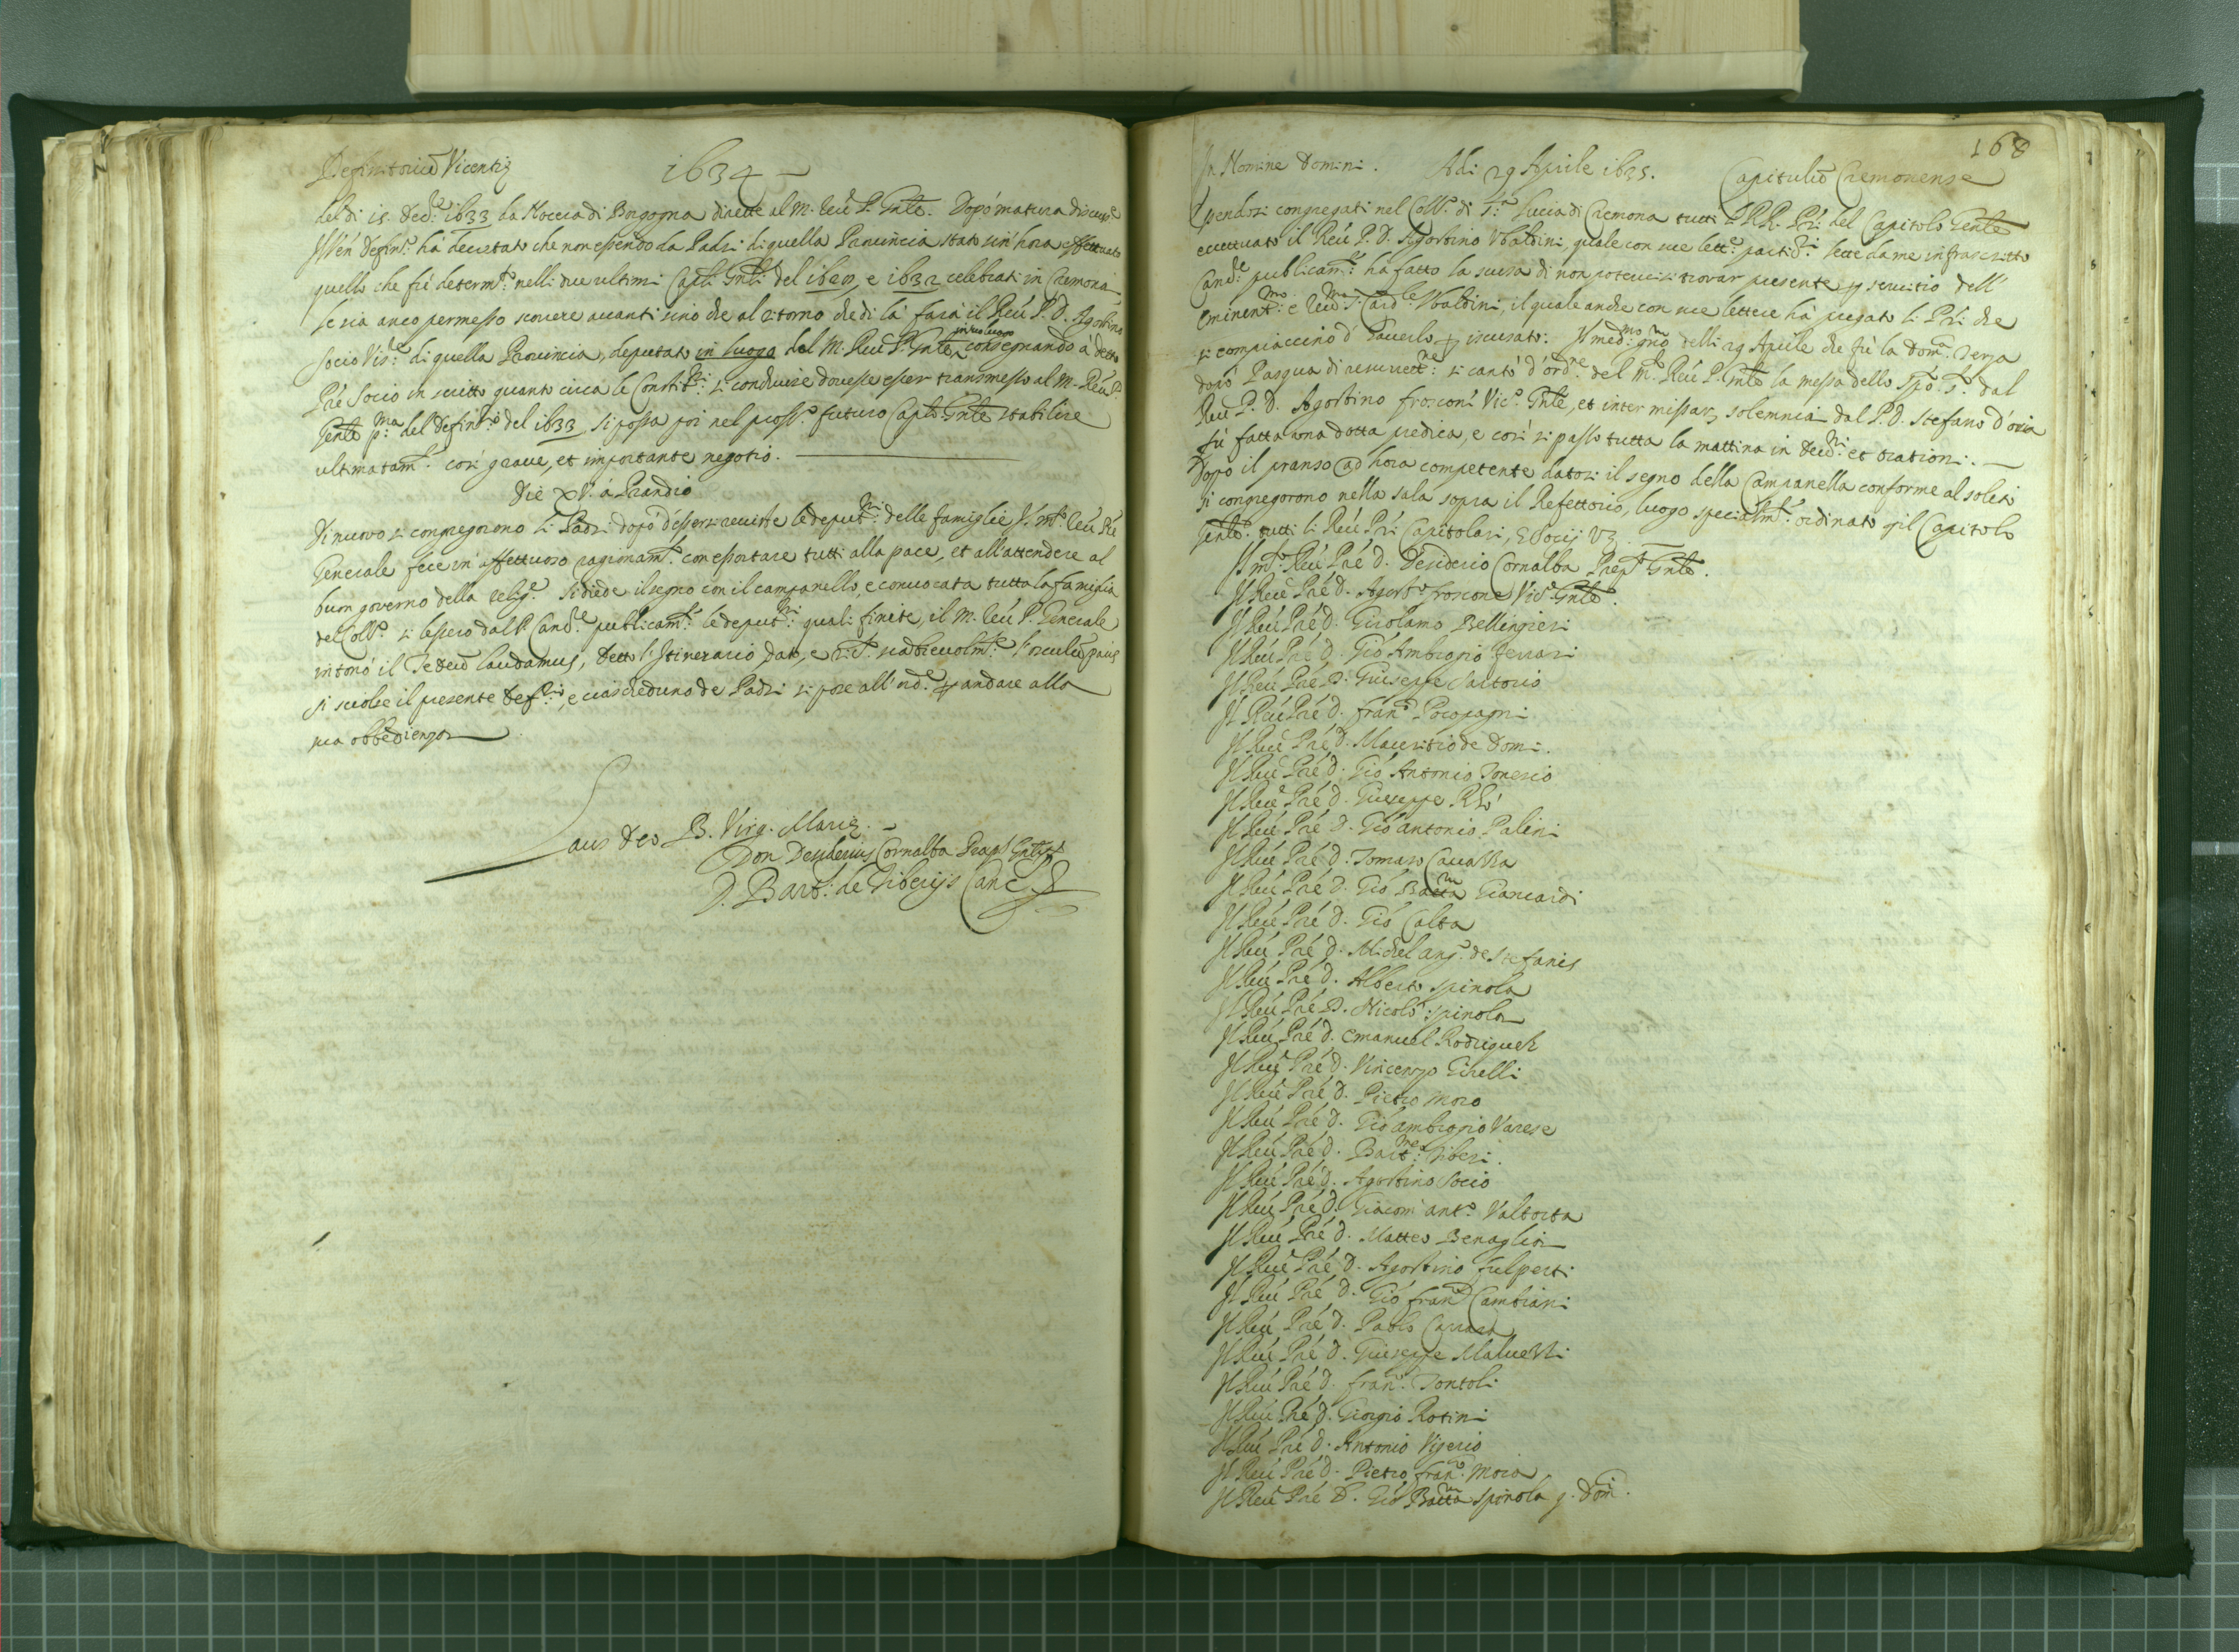 Definitoriũ Vicentię 1634
del di 15. Decẽ 1633 da Noccia di Borgogna dirette al M. Reũ P. Gnle. Dopò matura discuss.e
Il Vẽn Defint.o hà decretato che non essendo da Padri di quella Provincia stato sin' hora effettuato
quello che fù determ.to nelli due ultimi Capli Gnli del e 1632 celebrati in Cremona,
le sia anco permesso scorrere avanti sino che al ritorno che di là farà il Reũ P. D. Agostino
Socio Vis.re di quella Provincia, deputato in luogo del M. Reũ P. Gnle, consegnando à detto
Prẽ Socio in scritto quanto circa le Constit.ni si concluse dovesse esser transmesso al M. Reũ P.
Gente p.ma del Defint.o del 1633, si possa poi nel pross.o futuro Caplo Gnle stabilire
ultimatam.te così grave, et importante negotio.
Die XV. à Prandio
Di nuovo si congregorono li Padri dopò d'essersi reviste le deput.ni delle famiglie Il m.to Reũ Prẽ
Generale fece un' affettuoso ragionam.to con essortare tutti alla pace, et all'attendere al
buon governo della relig.e Si diede il segno con il campanello, e convocata tutta la famiglia
del Coll.o si lessero dal P. Canc.e publicam.te le deput.ni quali finite, il M. Reũ P. Generale
intonò il Te Deũ laudamus, detto l'Itinerario, dato, e ric.to scabievolm.te l'osculũ pacis
si sciolse il presente Def.rio, e ciascheduno de Padri si pose all'ord.e p andare alla
sua obbedienza
Laus Deo B. Virg. Marię.
Don Desiderius Cornalba Prępt Gnlis
D. Bart. de Tiberijs Canc.
168
In Nomine Domini. Adi 29 Aprile 1635. Capituliũ Cremonense
Essendosi congregati nel Coll.o di S.ta Lucia di Cremona tutti li RR. Pri del Capitolo Gnle
eccettuato il Reũ P. D. Agostino Ubaldini, quale con sue lett.e partic.ri lette da me infrascritto
Canc.e publicam.te hà fatto la scusa di non potervisi trovar presente p servitio dell'
Eminent.mo e Reũ.mo S. Card.le Ubaldini, il quale anche con sue lettere hà pregato li Pri che
si compiaccino d'haverlo p iscusato. Il med.mo gno delli 29 Aprile che fù la Dom.ca Terza
dopò Pasqua di resurrett.ne si cantò d'ord.ne del M. Reũ P. Gnle la messa dello Spõ S.to dal
Reũ P. D. Agostino Frosconi Vic.o Gnle, et inter missar, solemnia dal P. D. Stefano d'oria
fù fatta una dotta predica, e così si passò tutta la mattina in et orationi.
Dopò il pranso ad hora competente datosi il segno della Campanella conforme al solito
si congregorono nella sala sopra il Refettorio, luogo specialm.te ordinato p il Capitolo
Gnle tutti li Reũ Pri Capitolari, e Socij Vz.
Il m.to Reũ Prẽ D. Desiderio Cornalba Prẽp.to Gnle.
Il Reũ Prẽ D. Agost.o froscone Vic.o Gnle.
Il Reũ Prẽ D. Girolamo Bellingieri
Il Reũ Prẽ D. Giõ Ambrogio Ferrari
Il Reũ Prẽ D. Giuseppe Sartorio
Il Reũ Prẽ D. fran.co Pocopagni
Il Reũ Prẽ D. Mauritio de Domi.
Il Reũ Prẽ D. Giõ Antonio Tonesio
Il Reũ Prẽ D. Giuseppe Rhò
Il Reũ Prẽ D. Giõ antonio Palini
Il Reũ Prẽ D. Tomaso Cavazza
Il Reũ Prẽ D. Giõ Batta Giancardi
Il Reũ Prẽ D. Giõ Calta
Il Reũ Prẽ D. Michel ang.o de Stefanis
Il Reũ Prẽ D. Alberto spinola
Il Reũ Prẽ D. Nicolò spinola
Il Reũ Prẽ D. Emanuel Rodriguez
Il Reũ Prẽ D. Vincenzo Girelli
Il Reũ Prẽ D. Pietro Moro
Il Reũ Prẽ D. Giõ ambrogio Varese
Il Reũ Prẽ D. Bart.meo Tiberi.
Il Reũ Prẽ D. Agostino Socio
Il Reũ Prẽ D. Giacom' ant.o Valtorta
Il Reũ Prẽ D. Matteo Benaglia
Il Reũ Prẽ D. Agostino fulperti
Il Reũ Prẽ D. Giõ fran.co Cambiani
Il Reũ Prẽ D. Paolo Carrara
Il Reũ Prẽ D. Giuseppe Malvezzi
Il Reũ Prẽ D. fran.co Tontoli
Il Reũ Prẽ D. Giorgio Rotini
Il Reũ Prẽ D. Antonio Vigerio
Il Reũ Prẽ D. Pietro fran.co Moro
Il Reũ Prẽ D. Giõ Batta spinola q. Dom.